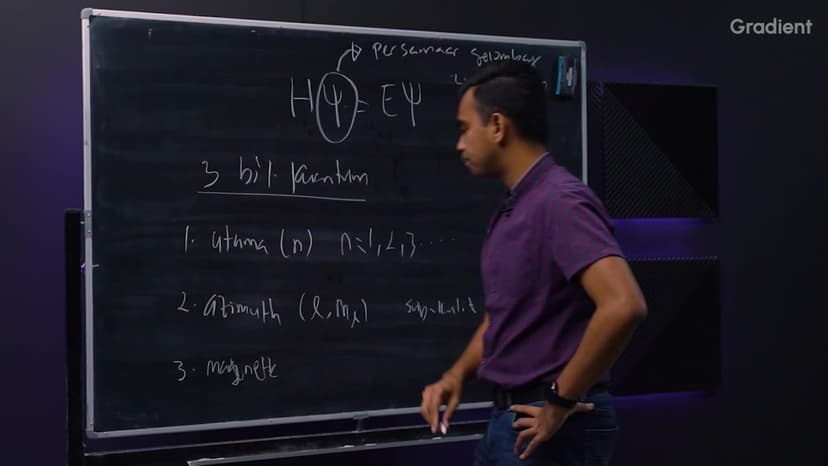 Gradient
persamaan gelombang
HΨ = EΨ
3 bil. kuantum
1. utama (n) n=1,2,3.....
2. azimuth (l, ml) sub-kulit
3. magnetik